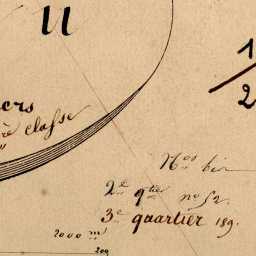 11
1
2
ers
re classe
Nos bis
2e qtier no 52.
3e quartier 189.
2000 m
200